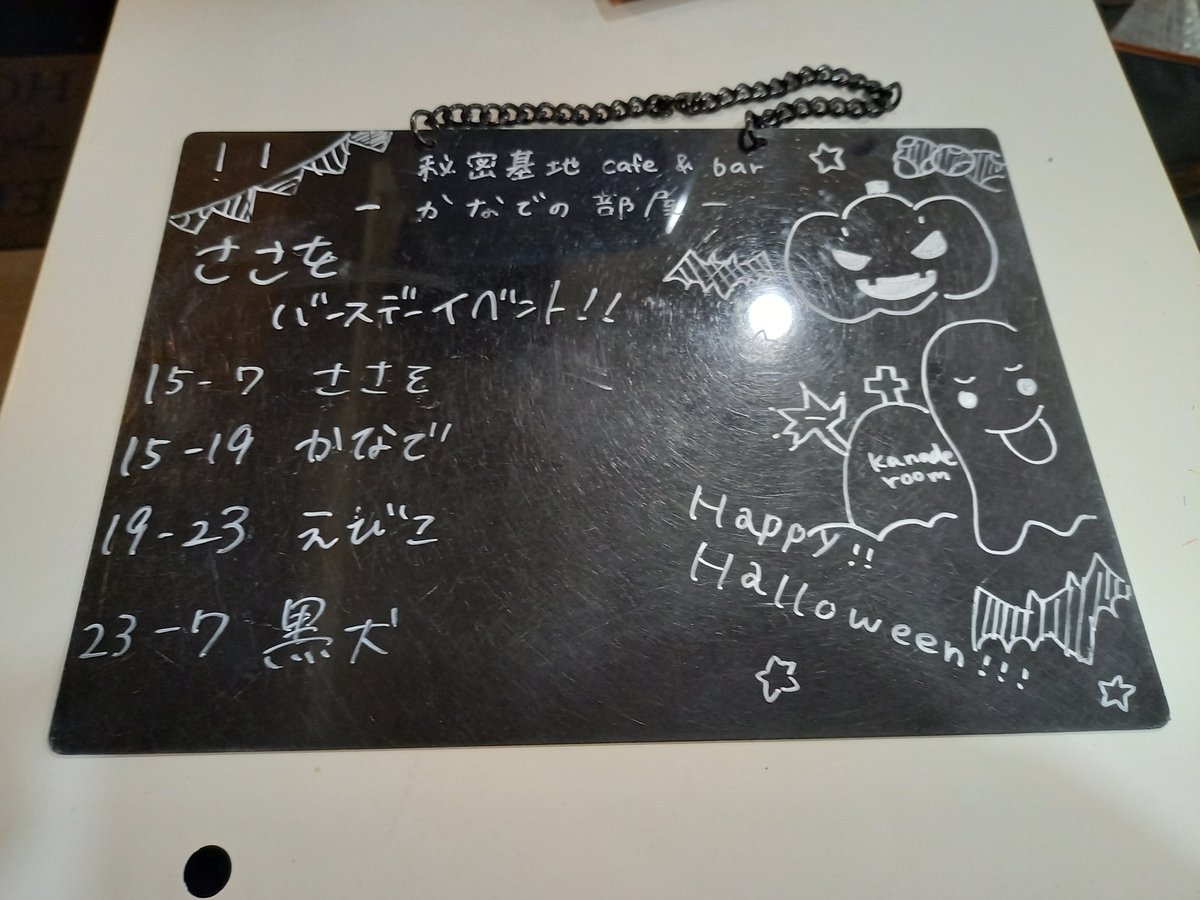 !!
秘密基地 cafe & bar
- かなでの部屋 -
ささを
バースデーイベント!!
15-7 ささを
15-19 かなで
19-23 えびこ
23-7 黒犬
kanade
room
Happy!!
Halloween!!!